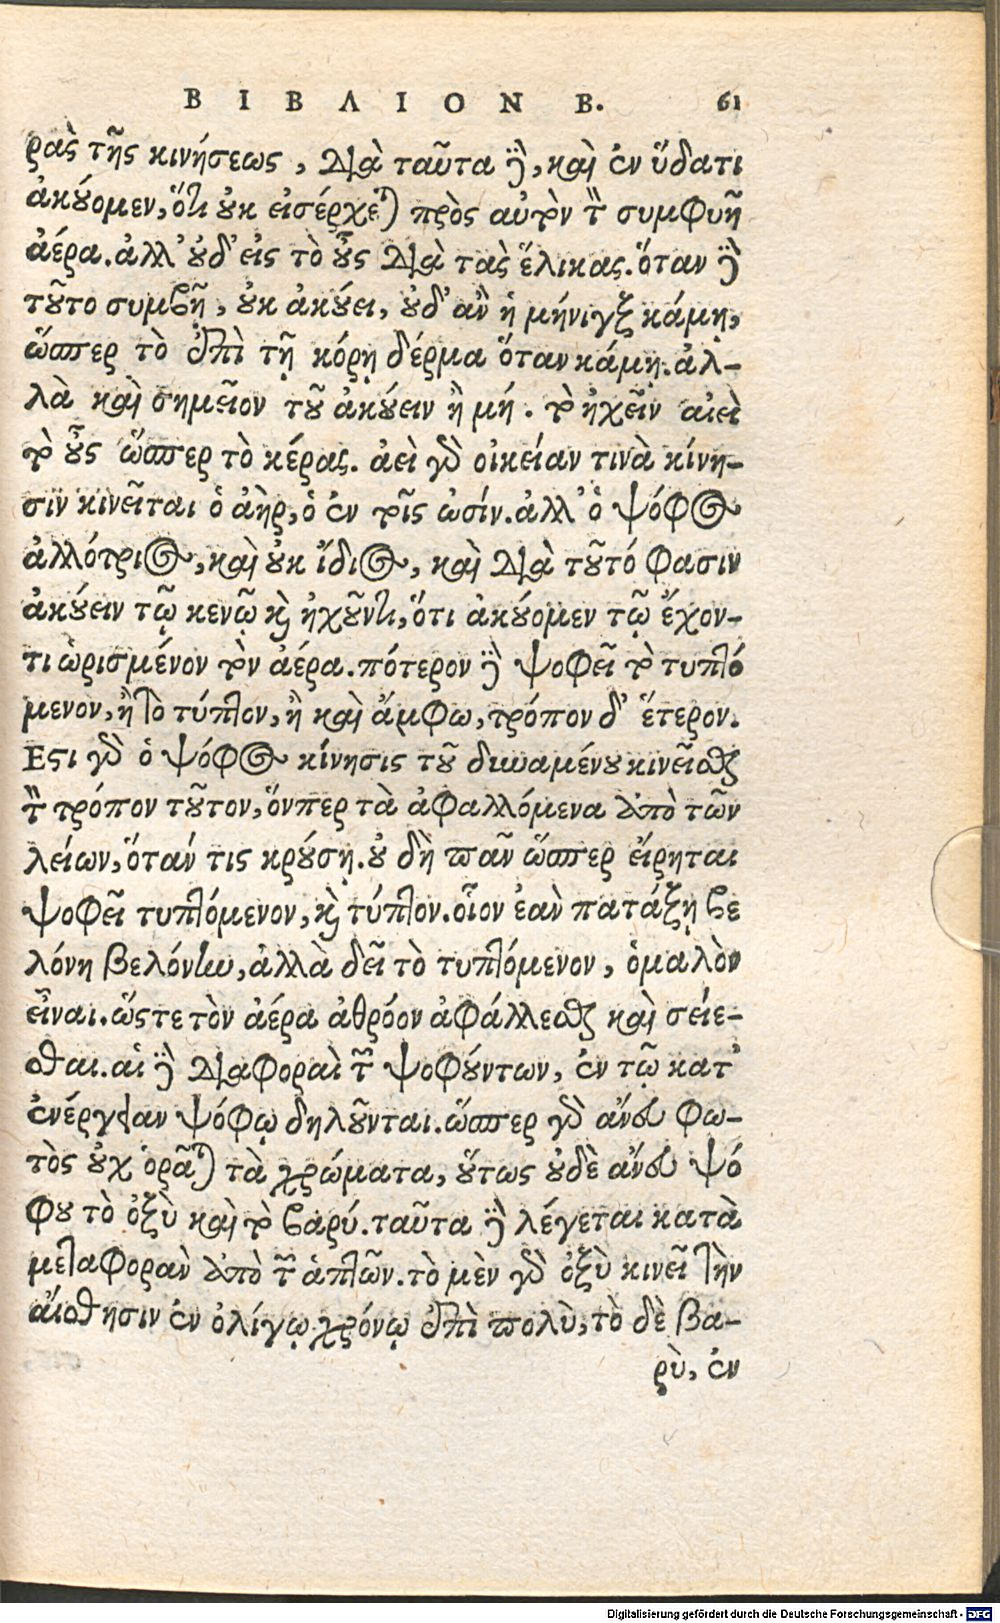 ΒΙΒΛΙΟΝ Β. 61
ρας τῆς κινήσεως, διὰ ταῦτα δὲ, καὶ ἐν ὕδατι
ἀκούομεν, ὅτι οὐκ εἰσέρχεται πρὸς αὐτὸν τὸν συμφυῆ
ἀέρα. ἀλλ' οὐδ' εἰς τὸ οὖς διὰ τὰς ἕλικας. ὅταν δὲ
τοῦτο συμβῇ, οὐκ ἀκούει, οὐδ' ἂν ἡ μήνιγξ κάμῃ,
ὥσπερ τὸ ἐπὶ τῇ κόρῃ δέρμα ὅταν κάμῃ. ἀλ-
λὰ καὶ σημεῖον τοῦ ἀκούειν ἢ μή. τὸ ἠχεῖν αἰεὶ
τὸ οὖς ὥσπερ τὸ κέρας. ἀεὶ γὰρ οἰκείαν τινὰ κίνη-
σιν κινεῖται ὁ ἀὴρ, ὁ ἐν τοῖς ὠσίν. ἀλλ' ὁ ψόφος
ἀλλότριος, καὶ οὐκ ἴδιος, καὶ διὰ τοῦτό φασιν
ἀκούειν τῷ κενῷ καὶ ἠχοῦντι, ὅτι ἀκούομεν τῷ ἔχον-
τι ὡρισμένον τὸν ἀέρα. πότερον δὲ ψοφεῖ τὸ τυπτό
μενον, ἢ τὸ τύπτον, ἢ καὶ ἄμφω, τρόπον δ' ἕτερον.
Εστι γὰρ ὁ ψόφος κίνησις τοῦ δυναμένου κινεῖσθαι
τὸν τρόπον τοῦτον, ὅνπερ τὰ ἀφαλλόμενα ἀπὸ τῶν
λείων, ὅταν τις κρούσῃ. οὐ δὴ πᾶν ὥσπερ εἴρηται
ψοφεῖ τυπτόμενον, καὶ τύπτον. οἷον ἐὰν πατάξῃ βε
λόνη βελόνην, ἀλλὰ δεῖ τὸ τυπτόμενον, ὁμαλὸν
εἶναι. ὥστε τὸν ἀέρα ἀθρόον ἀφάλλεσθαι καὶ σείε-
σθαι. αἱ δὲ διαφοραὶ τῶν ψοφούντων, ἐν τῷ κατ'
ἐνέργειαν ψόφῳ δηλοῦνται. ὥσπερ γὰρ ἄνευ φω-
τὸς οὐχ ὁρᾶται τὰ χρώματα, οὕτως οὐδὲ ἄνευ ψό
φου τὸ ὀξὺ καὶ τὸ βαρύ. ταῦτα δὲ λέγεται κατὰ
μεταφορὰν ἀπὸ τῶν ἁπτῶν. τὸ μὲν γὰρ ὀξὺ κινεῖ τὴν
αἴσθησιν ἐν ὀλίγῳ χρόνῳ ἐπὶ πολὺ, τὸ δὲ βα-
ρὺ, ἐν
Digitalisierung gefördert durch die Deutsche Forschungsgemeinschaft - DFG